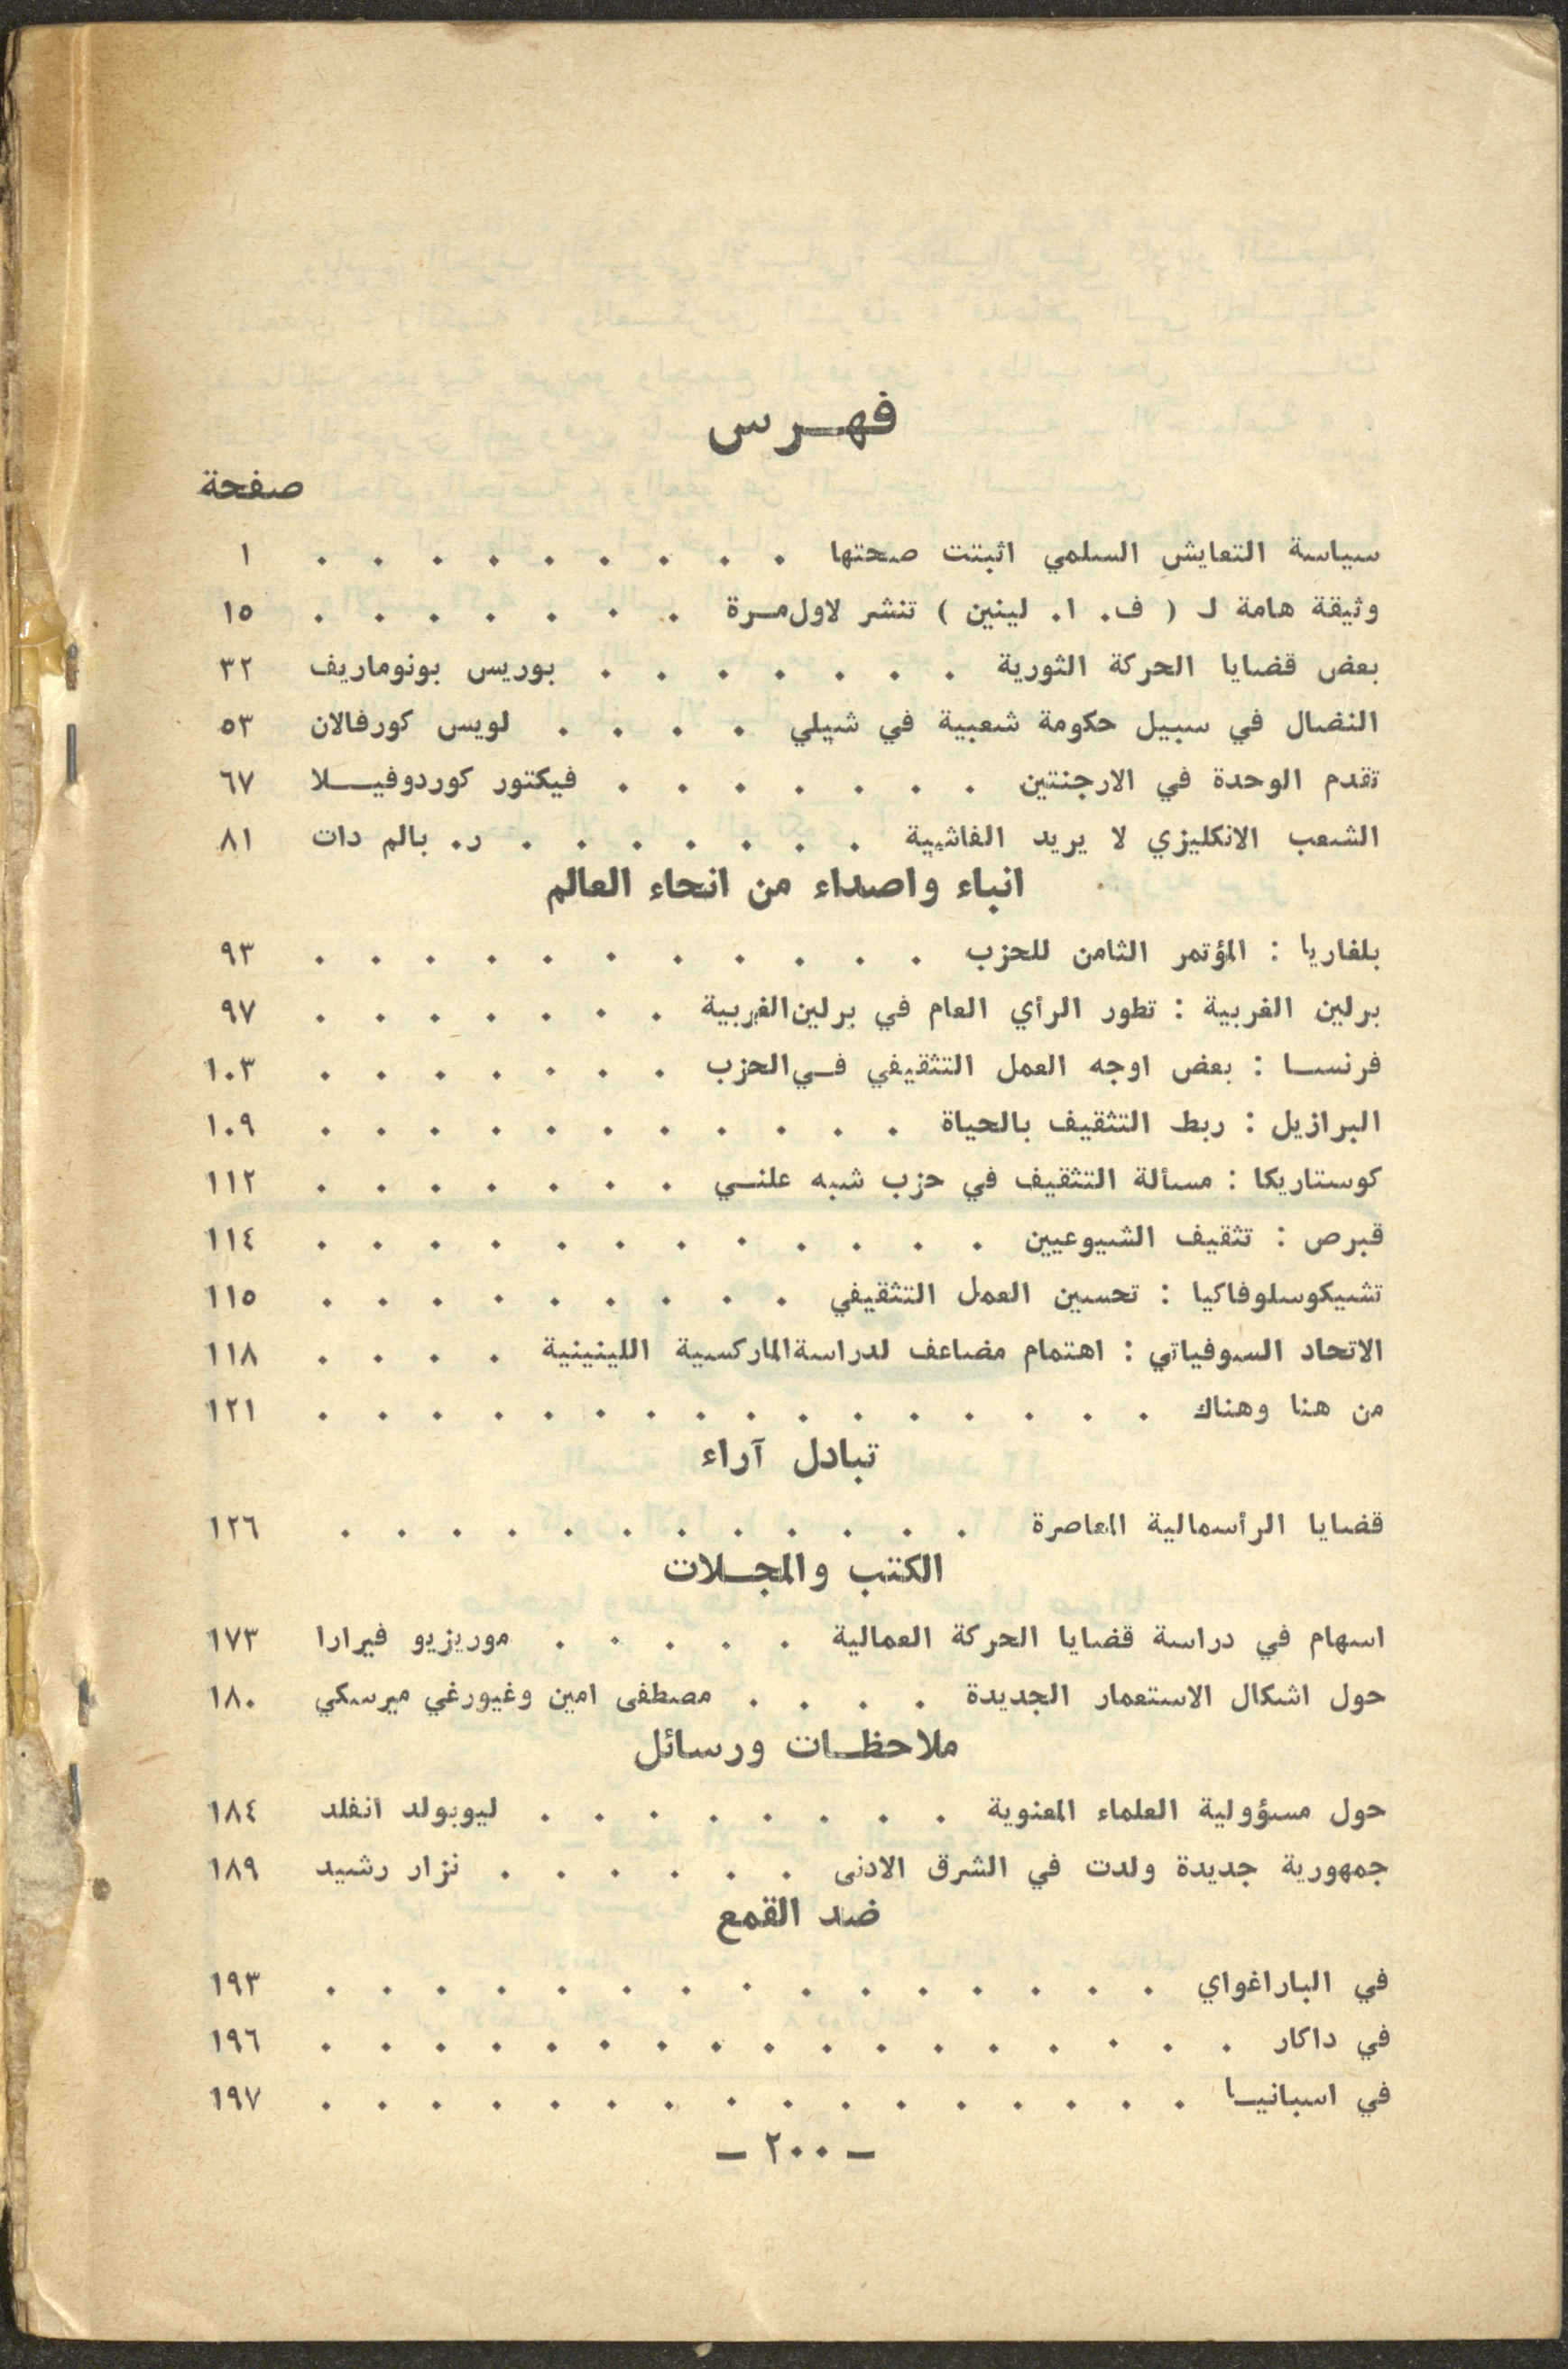 فهـرس
صفحة
سياسة التعايش السلمي اثبتت صحتها . . . . . . . . . ١
وثيقة هامة لـ ( ف. ا. لينين ) تنشر لاول مـرة . . . . . . . ١٥
بعض قضايا الحركة الثورية . . . . . . . بوريس بونوماريف ٣٢
النضال في سبيل حكومة شعبية في شيلي . . . . لويس كورفالان ٥٣
تقدم الوحدة في الارجنتين . . . . . . . فيكتور كوردوفيــلا ٦٧
الشعب الانكليزي لا يريد الفاشية . . . . . . . ر. بالم دات ٨١
انباء واصداء من انحاء العالم
بلغاريا : المؤتمر الثامن للحزب . . . . . . . . . . . ٩٣
برلين الغربية : تطور الرأي العام في برلين الغربية . . . . . . . ٩٧
فرنســا : بعض اوجه العمل التثقيفي فـي الحزب . . . . . . . ١٠٣
البرازيل : ربط التثقيف بالحياة . . . . . . . . . . . ١٠٩
كوستاريكا : مسألة التثقيف في حزب شبه علنـي . . . . . . . ١١٢
قبرص : تثقيف الشيوعيين . . . . . . . . . . . . ١١٤
تشيكوسلوفاكيا : تحسين العمل التثقيفي . . . . . . . . . ١١٥
الاتحاد السوفياتي : اهتمام مضاعف لدراسة الماركسية اللينينية . . . . ١١٨
من هنا وهناك . . . . . . . . . . . . . . . . ١٢١
تبادل آراء
قضايا الرأسمالية المعاصرة . . . . . . . . . . . . ١٢٦
الكتب والمجـلات
اسهام في دراسة قضايا الحركة العمالية . . . . . موريزيو فيرارا ١٧٣
حول اشكال الاستعمار الجديدة . . . . مصطفى امين وغيورغي ميرسكي ١٨٠
ملاحظـات ورسائل
حول مسؤولية العلماء المعنوية . . . . . . . . ليوبولد انفلد ١٨٤
جمهورية جديدة ولدت في الشرق الادنى . . . . . . نزار رشيد ١٨٩
ضد القمع
في الباراغواي . . . . . . . . . . . . . . . ١٩٣
في داكار . . . . . . . . . . . . . . . . . ١٩٦
في اسبانيـا . . . . . . . . . . . . . . . . ١٩٧
ـ ٢٠٠ ـ